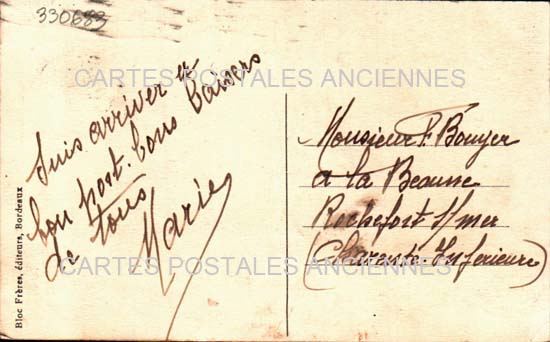 330683
CARTES POSTALES ANCIENNES
Suis arriver a
bon port. bons baisers
de tous
Marie
Monsieur F. Bouyer
a la Beaune
Rochefort s/mer
(Charente Inferieure)
CARTES POSTALES ANCIENNES
Bloc Frères, éditeurs, Bordeaux